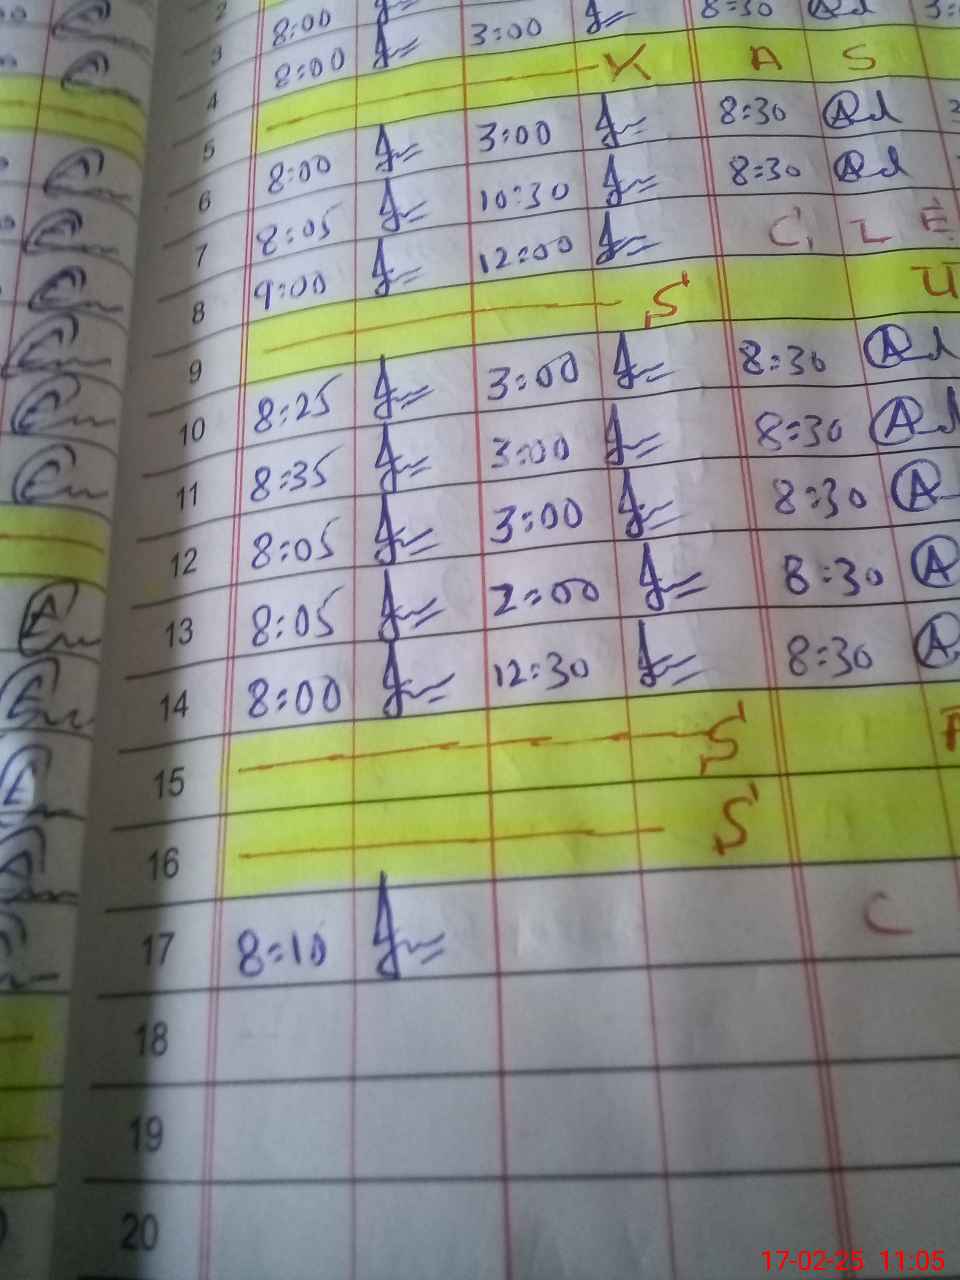 2
3 8:00
4 8:00 3:00 8:30
5 K A S
6 8:00 3:00 8:30
7 8:05 10:30 8:30
8 9:00 12:00 C L E
9 S U
10 8:25 3:00 8:30
11 8:35 3:00 8:30
12 8:05 3:00 8:30
13 8:05 2:00 8:30
14 8:00 12:30 8:30
15 S
16 S
17 8:10 C
18
19
20
17-02-25 11:05